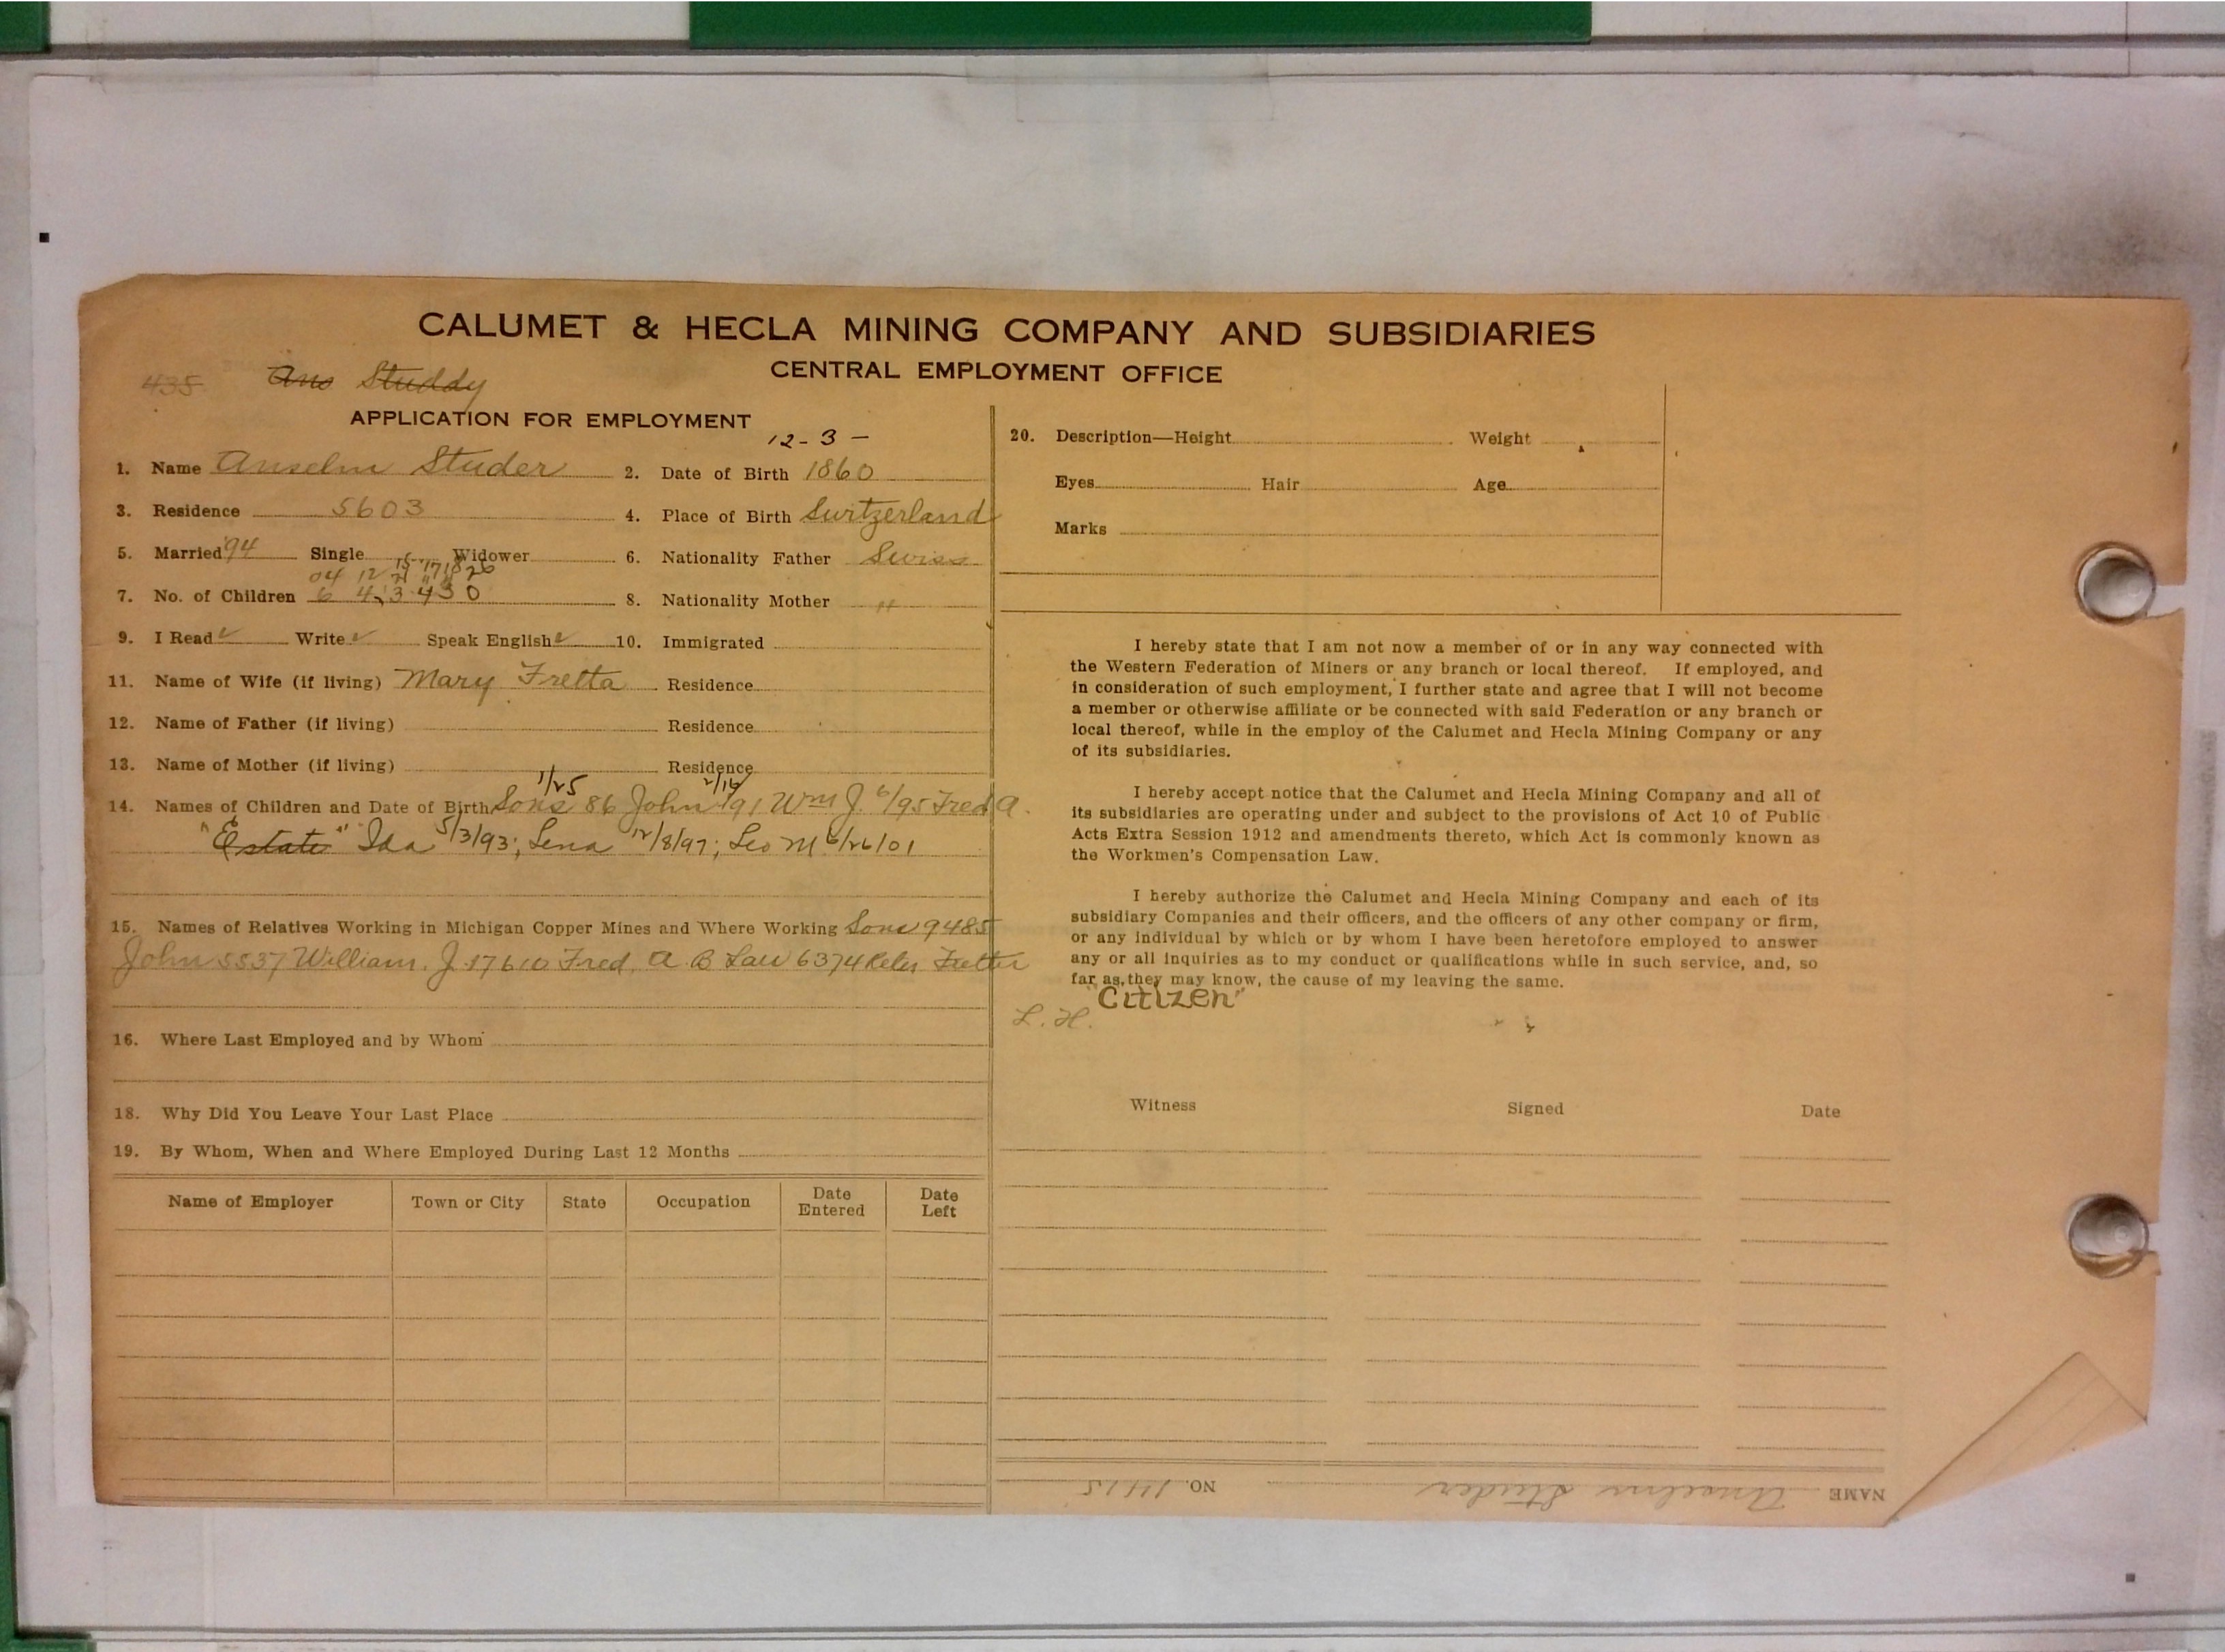 CALUMET & HECLA MINING COMPANY AND SUBSIDIARIES
CENTRAL EMPLOYMENT OFFICE
435 Ans Studdy
APPLICATION FOR EMPLOYMENT
12-3-
1. Name Anselm Studer 2. Date of Birth 1860
3. Residence 5603 4. Place of Birth Switzerland
5. Married '94 Single Widower 6. Nationality Father Swiss
04 12 15 17 18 26
7. No. of Children 6 4 3 4 3 0 8. Nationality Mother "
9. I Read ✓ Write ✓ Speak English ✓ 10. Immigrated
11. Name of Wife (if living) Mary Fretta Residence
12. Name of Father (if living) Residence
13. Name of Mother (if living) Residence
1/25 2/16
14. Names of Children and Date of Birth Sons 86 John '91 Wm J. 6/95 Fred A.
"Estate" Ida 5/3/93; Lena 12/8/97; Leo M 6/26/01
15. Names of Relatives Working in Michigan Copper Mines and Where Working Sons 9485
John 5537 William. J. 17610 Fred. A. B Law 6374
16. Where Last Employed and by Whom
18. Why Did You Leave Your Last Place
19. By Whom, When and Where Employed During Last 12 Months
Name of Employer Town or City State Occupation Date Entered Date Left
20. Description—Height Weight
Eyes Hair Age
Marks
I hereby state that I am not now a member of or in any way connected with
the Western Federation of Miners or any branch or local thereof. If employed, and
in consideration of such employment, I further state and agree that I will not become
a member or otherwise affiliate or be connected with said Federation or any branch or
local thereof, while in the employ of the Calumet and Hecla Mining Company or any
of its subsidiaries.
I hereby accept notice that the Calumet and Hecla Mining Company and all of
its subsidiaries are operating under and subject to the provisions of Act 10 of Public
Acts Extra Session 1912 and amendments thereto, which Act is commonly known as
the Workmen's Compensation Law.
I hereby authorize the Calumet and Hecla Mining Company and each of its
subsidiary Companies and their officers, and the officers of any other company or firm,
or any individual by which or by whom I have been heretofore employed to answer
any or all inquiries as to my conduct or qualifications while in such service, and, so
far as they may know, the cause of my leaving the same.
"Citizen"
L. H.
Witness Signed Date
NAME Anselm Studer NO. 11115